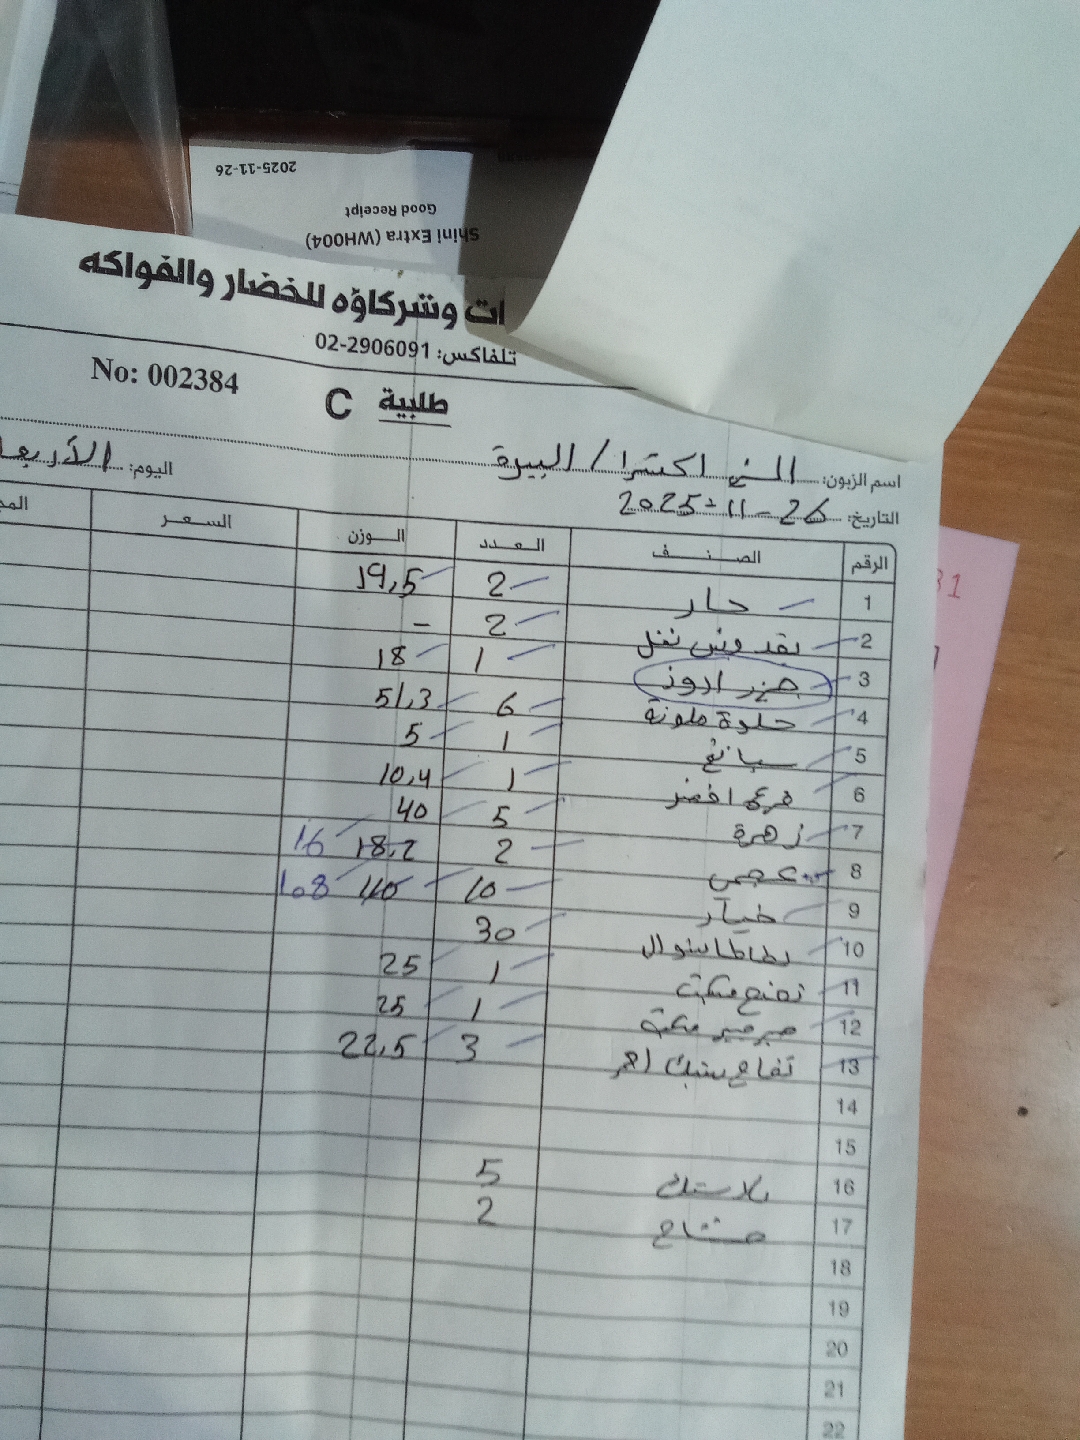 2025-11-26
Good Receipt
Shini Extra (WH004)
ات وشركاؤه للخضار والفواكه
تلفاكس: 02-2906091
No: 002384
طلبية C
اسم الزبون: الشني اكسترا / البيرة
اليوم: الأربعا
التاريخ: 26-11-2025
الرقم الصنف العدد الوزن السعر المج
1 حار 2 19,5
2 بقدونس نخل 2 -
3 جزر ادوز 1 18
4 حلوة ملونة 6 51,3
5 سبانخ 1 5
6 قرع اخضر 1 10,4
7 زهرة 5 40
8 عجمي 2 18,2 16
9 خيار 10 110 108
10 بطاطا سنوال 30
11 نعنع مكبة 1 25
12 جرجير مكبة 1 25
13 تفاح سنبك احمر 3 22,5
14
15
16 بلاستك 5
17 مشتاح 2
18
19
20
21
22